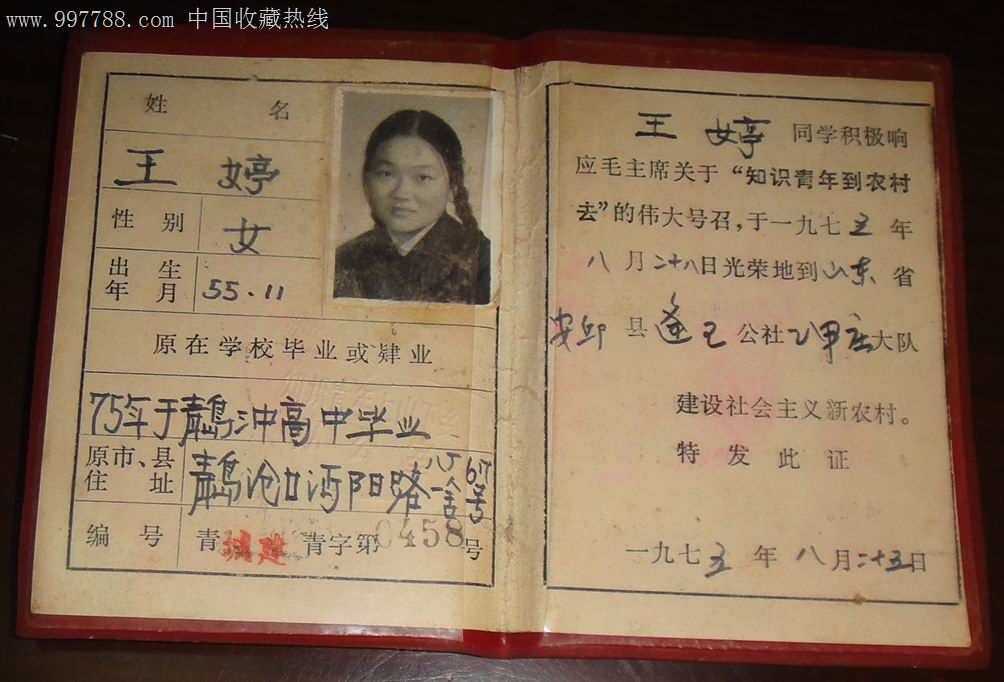 www.997788.com 中国收藏热线
姓 名
王 婷
性 别 女
出 生
年 月 55.11
原在学校毕业或肄业
75年于青岛冲高中毕业
原市、县
住 址 青岛沧口沔阳路 67号
编 号 青 城建 青字第0458号
王 婷 同学积极响
应毛主席关于“知识青年到农村
去”的伟大号召，于一九七五年
八月二十八日光荣地到山东省
安邱县逄王公社 甲庄大队
建设社会主义新农村。
特 发 此 证
一九七五年八月二十五日